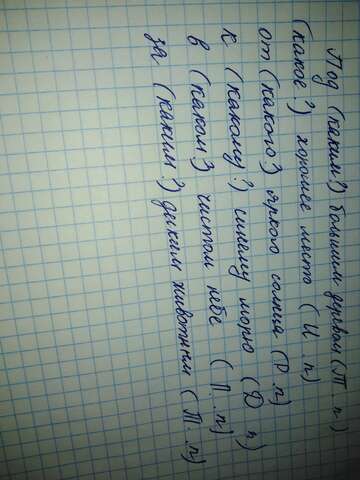 Под (каким?) большим деревом (Т. п)
(какое?) хорошее место (И. п)
от (какого?) яркого солнца (Р. п)
к (какому?) синему морю (Д. п)
в (каком?) чистом небе (П. п)
за (каким?) диким животным (Т. п)